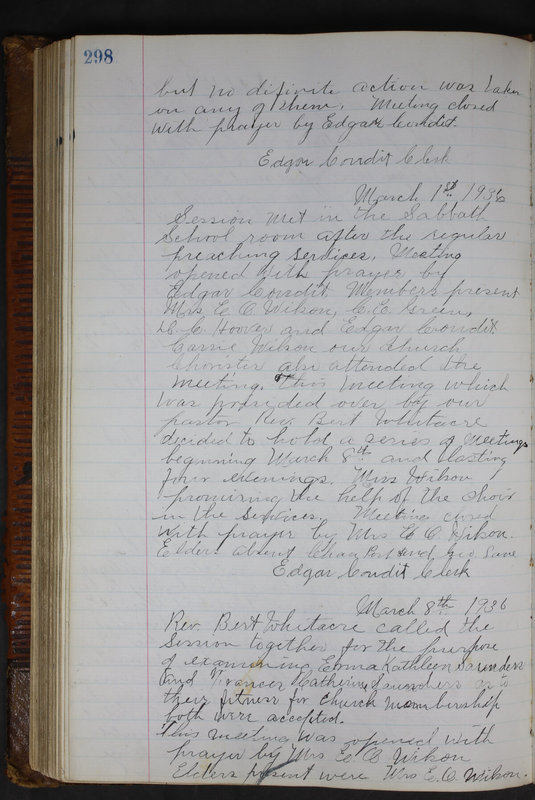 298
but no difinite action was taken
on any of them. Meeting closed
with prayer by Edgar Condit.
Edgar Condit Clerk
March 1st 1936
Session met in the Sabbath
School room after the regular
preaching services. Meeting
opened with prayer by
Edgar Condit Members present
Mrs E. C. Wilson, C. E. Green,
C. E. Hoover and Edgar Condit.
Carrie Wilson our church
Chorister also attended the
meeting. This meeting which
was presided over by our
pastor Rev. Bert Whitacre
decided to hold a series of Meetings
beginning March 8th and lasting
four evenings. Miss Wilson
promising the help of the choir
in the services. Meeting closed
with prayer by Mrs E. C. Wilson.
Elders absent Chas Post and Geo. Lane
Edgar Condit Clerk
March 8th 1936
Rev. Bert Whitacre called the
Session together for the purpose
of examining Emma Kathleen Saunders
and Frances Katherine Saunders as to
their fitness for church membership
both were accepted.
This meeting was opened with
prayer by Mrs E. C. Wilson
Elders present were Mrs E. C. Wilson.